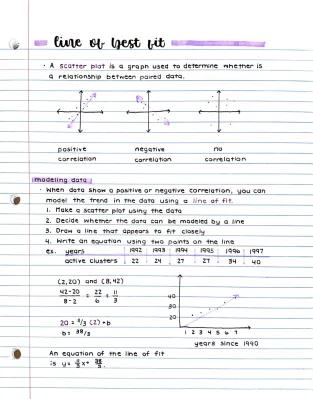 line of best fit
· A scatter plot is a graph used to determine whether is
a relationship between paired data.
positive correlation
negative correlation
no correlation
modeling data
· When data show a positive or negative correlation, you can
model the trend in the data using a line of fit.
1. Make a scatter plot using the data
2. Decide whether the data can be modeled by a line
3. Draw a line that appears to fit closely
4. Write an equation using two points on the line
ex. years 1992 1993 1994 1995 1996 1997
active clusters 22 24 27 27 34 40
(2,20) and (8,42)
42-20 / 8-2 = 22 / 6 = 11 / 3
20 = 11/3 (2) + b
b = 38/3
40
30
20
1 2 3 4 5 6 7
years since 1990
An equation of the line of fit
is y = 11/3 x + 38/3.